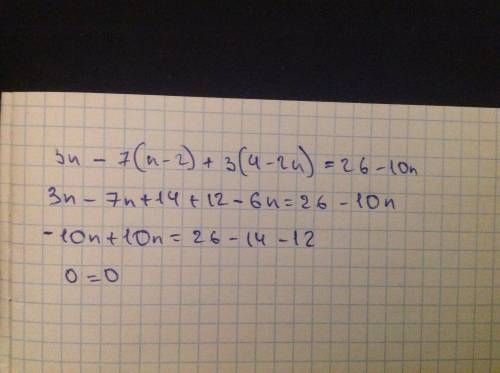 3n - 7(n-2) + 3(4-2n) = 26 - 10n
3n - 7n + 14 + 12 - 6n = 26 - 10n
-10n + 10n = 26 - 14 - 12
0 = 0